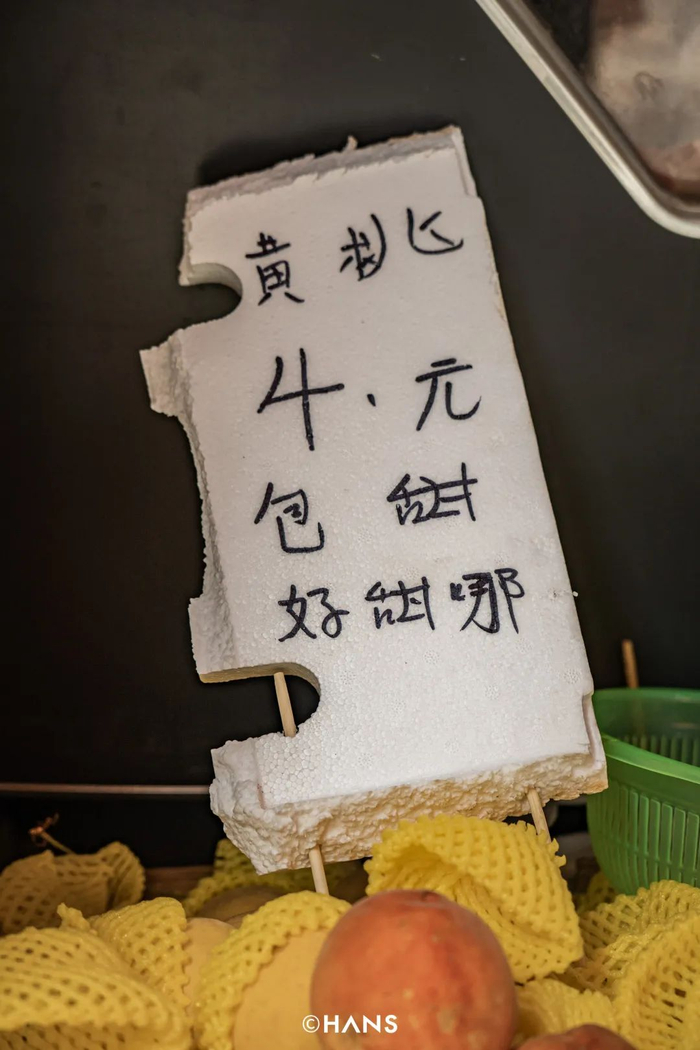 黄桃
4.元
包甜
好甜哪
©HANS